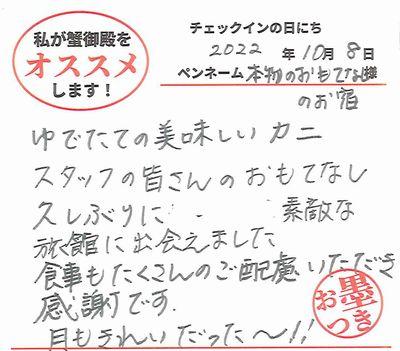 私が蟹御殿を
オススメ
します!
チェックインの日にち
2022 年 10月 8日
ペンネーム 本物のおもてなし様
のお宿
ゆでたての美味しいカニ
スタッフの皆さんのおもてなし
久しぶりに 素敵な
旅館に出会えました
食事もたくさんのご配慮いただき
感謝です.
月もきれいだった〜!!
お墨つき